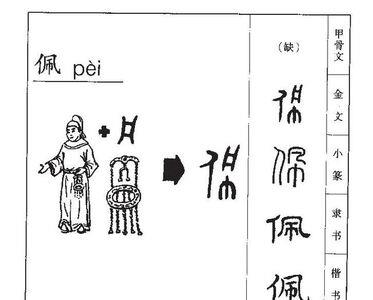 佩 pèi
（缺）
甲骨文
金文
小篆
隶书
楷书
佩
佩